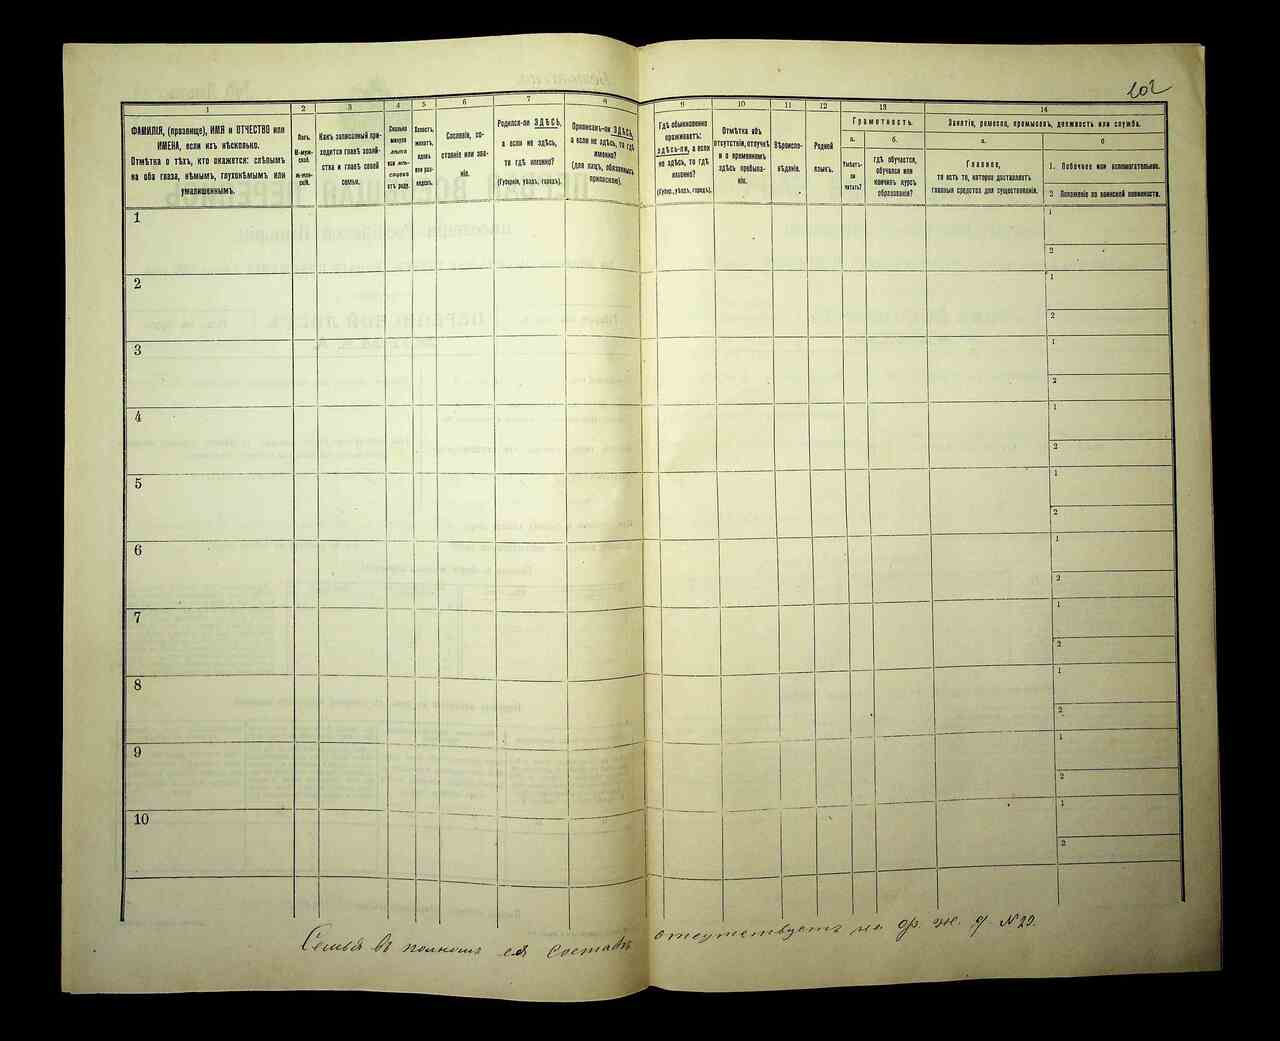 102
1
2
3
4
5
6
7
8
9
10
11
12
13
14
ФАМИЛІЯ, (прозвище), ИМЯ и ОТЧЕСТВО или
ИМЕНА, если ихъ нѣсколько.
Отмѣтка о тѣхъ, кто окажется: слѣпымъ
на оба глаза, нѣмымъ, глухонѣмымъ или
умалишеннымъ.
Полъ.
М-муж-
ской.
Ж-жен-
скій.
Какъ записанный при-
ходится главѣ хозяй-
ства и главѣ своей
семьи.
Сколько
минуло
лѣтъ
или мѣ-
сяцевъ
отъ роду.
Холостъ,
женатъ,
вдовъ
или раз-
веденъ.
Сословіе, со-
стояніе или зва-
ніе.
Родился-ли ЗДѢСЬ,
а если не здѣсь,
то гдѣ именно?
(Губернія, уѣздъ, городъ).
Приписанъ-ли ЗДѢСЬ,
а если не здѣсь, то гдѣ
именно?
(для лицъ, обязанныхъ
припискою).
Гдѣ обыкновенно
проживаетъ:
здѣсь-ли, а если
не здѣсь, то гдѣ
именно?
(Губер., уѣздъ, городъ).
Отмѣтка объ
отсутствіи, отлучкѣ
и о временномъ
здѣсь пребыва-
ніи.
Вѣроиспо-
вѣданіе.
Родной
языкъ.
Грамотность.
а.
б.
Умѣетъ-
ли
читать?
гдѣ обучается,
обучался или
кончилъ курсъ
образованія?
Занятіе, ремесло, промыселъ, должность или служба.
а.
б
Главное,
то есть то, которое доставляетъ
главныя средства для существованія.
1. Побочное или вспомогательное.
2 Положеніе по воинской повинности.
1
1
2
2
1
2
3
1
2
4
1
2
5
1
2
6
1
2
7
1
2
8
1
2
9
1
2
10
1
2
Семья въ полномъ ея составѣ отсутствуетъ на др. ж. д. №22.